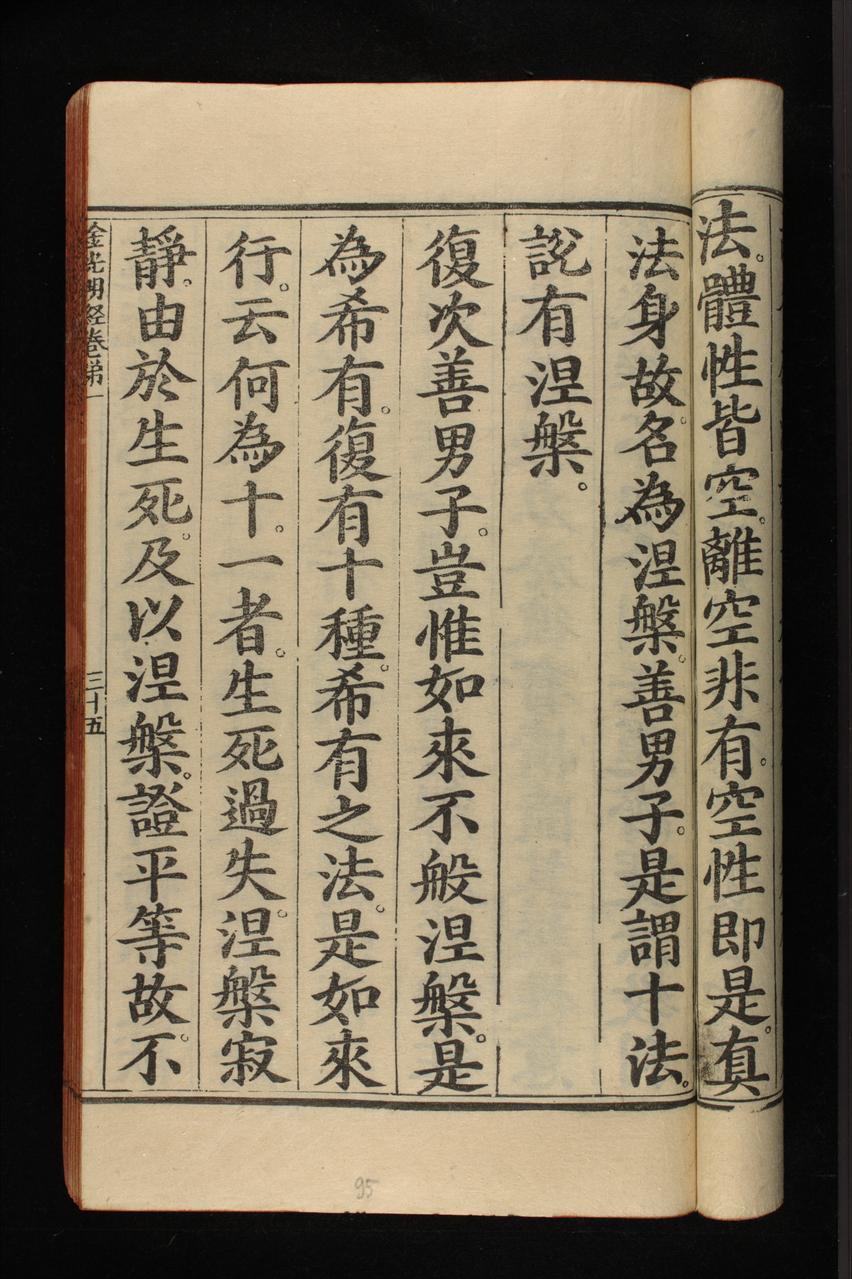 法。體性皆空。離空非有。空性即是。真
法身故。名為涅槃。善男子。是謂十法。
說有涅槃。
復次善男子。豈惟如來不般涅槃。是
為希有。復有十種。希有之法。是如來
行。云何為十。一者。生死過失。涅槃寂
靜。由於生死。及以涅槃。證平等故。不
金光明經卷第一
三十五
95